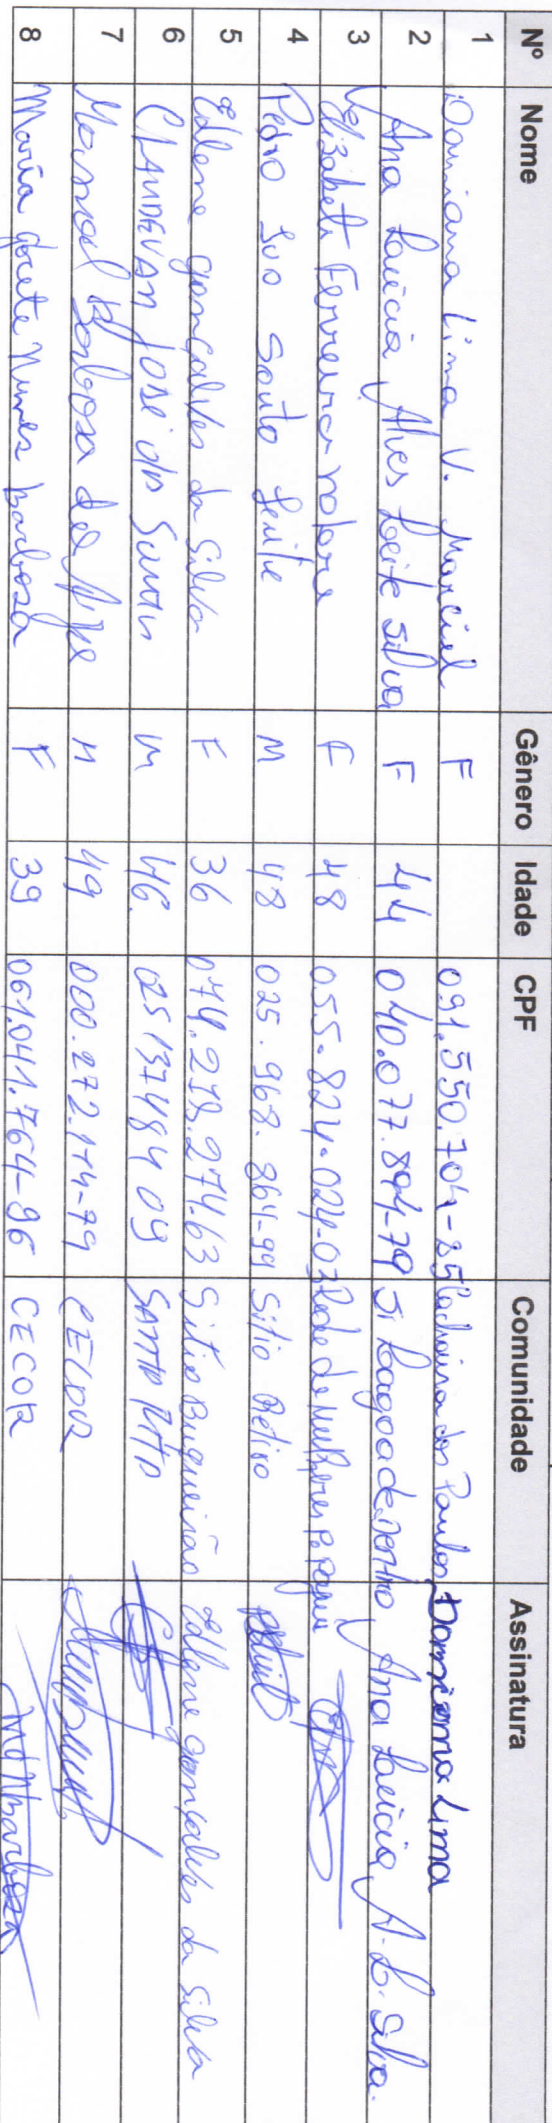 Nº Nome Gênero Idade CPF Comunidade Assinatura
1 Damiana Lima V. Marciel F 091.550.704-85 Cachoeira dos Paulos Damiana Lima
2 Ana Laécia Alves Leite Silva F 44 040.077.894-79 Si Lagoa de dentro Ana Laécia A. L. Silva.
3 Elizabete Ferreira F 48 055.824.024-03 Rede de mulheres P.
4 Pedro Ivo Souto Leite M 48 025.968.864-99 Sitio Retiro
5 Edlene gonçalves da Silva F 36 074.278.274.63 Sitio Buqueirão Edlene gonçalves da Silva
6 CLAUDEVAN José do M 46. 025137484 09
7 Manoel Barbosa M 49 000.272.174-79 CECOR
8 Maria gorete Nunes barbosa F 39 061.041.764-96 CECOR